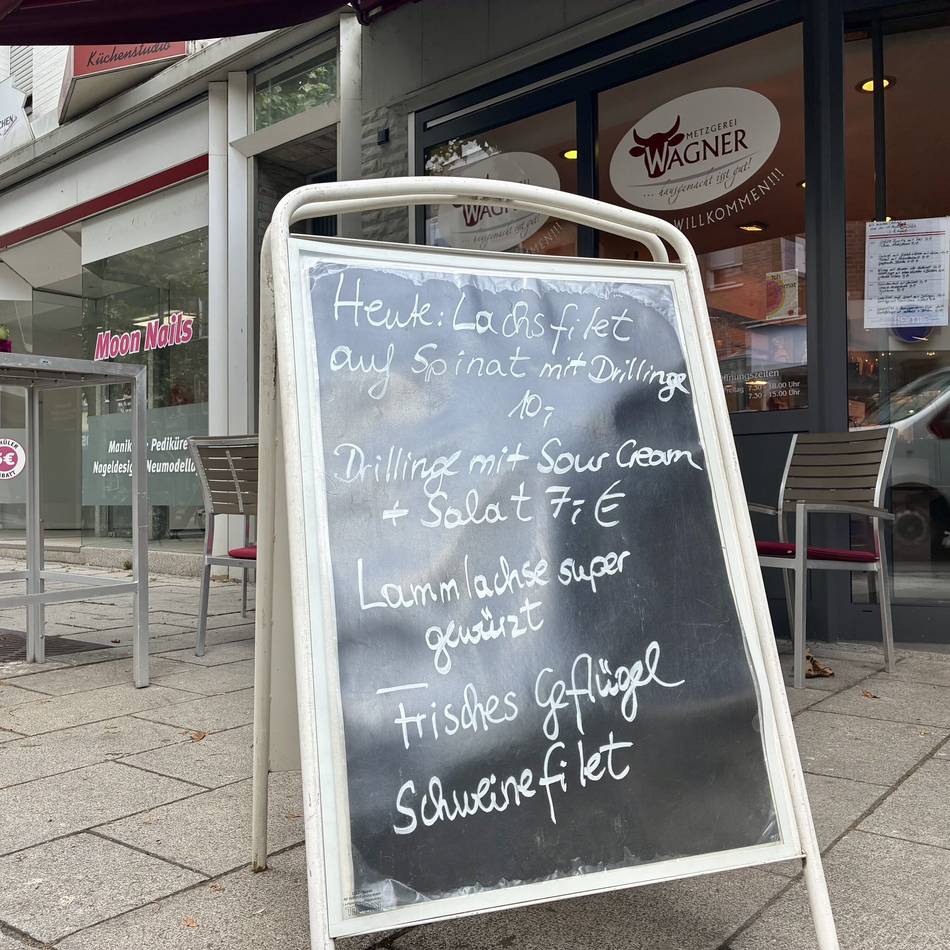 Küchenstudio
METZGEREI
WAGNER
... hausgemacht isst gut!
WILLKOMMEN!!!
WAGN
Moon Nails
Manik e Pediküre
Nageldesig Neumodell
5€
Heute: Lachsfilet
auf Spinat mit Drillinge
10,-
Drillinge mit Sour Cream
+ Salat 7,- €
Lammlachse super
gewürzt
Frisches Geflügel
Schweinefilet
ffnungszeiten
7.30 - 18.00 Uhr
7.30 - 15.00 Uhr